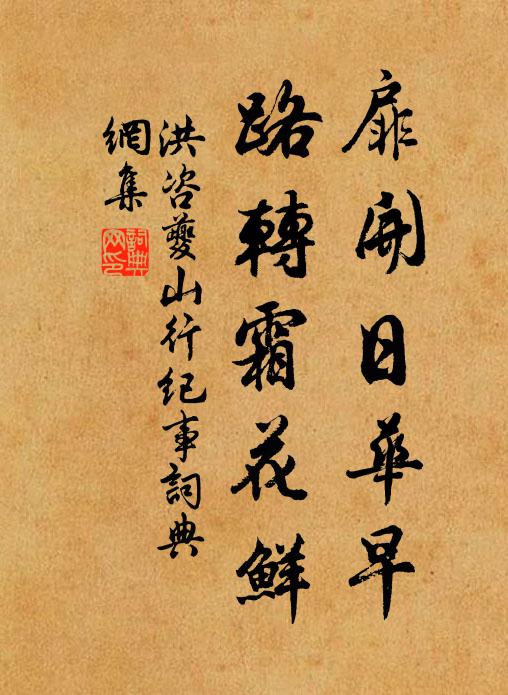 扉開日華早
路轉霜花鮮
洪咨夔山行紀事詞典
網集
詞典
网印